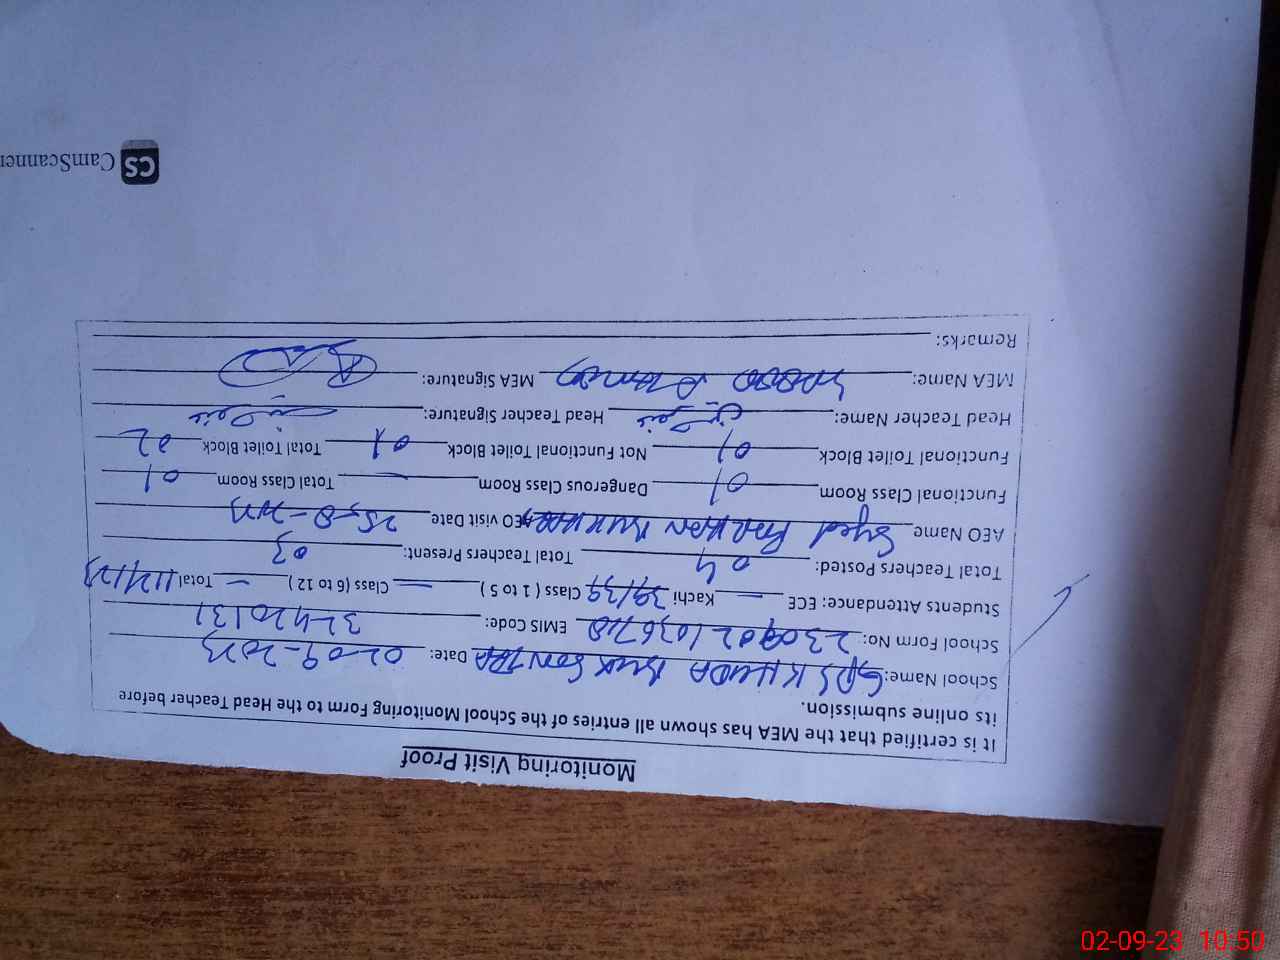 Monitoring Visit Proof
It is certified that the MEA has shown all entries of the School Monitoring Form to the Head Teacher before
its online submission.
School Name: GPS KHUDA BUX SONTRA Date: 02-09-2023
School Form No: EMIS Code: 32420131
Students Attendance: ECE — Kachi 39/39 Class ( 1 to 5 ) — Class (6 to 12 ) — Total
Total Teachers Posted: 04 Total Teachers Present: 03
AEO Name Syed BUKHARI AEO visit Date 25-8-2023
Functional Class Room 01 Dangerous Class Room — Total Class Room 01
Functional Toilet Block 01 Not Functional Toilet Block 01 Total Toilet Block 02
Head Teacher Name: Head Teacher Signature:
MEA Name: MEA Signature:
Remarks:
CS CamScanner
02-09-23 10:50